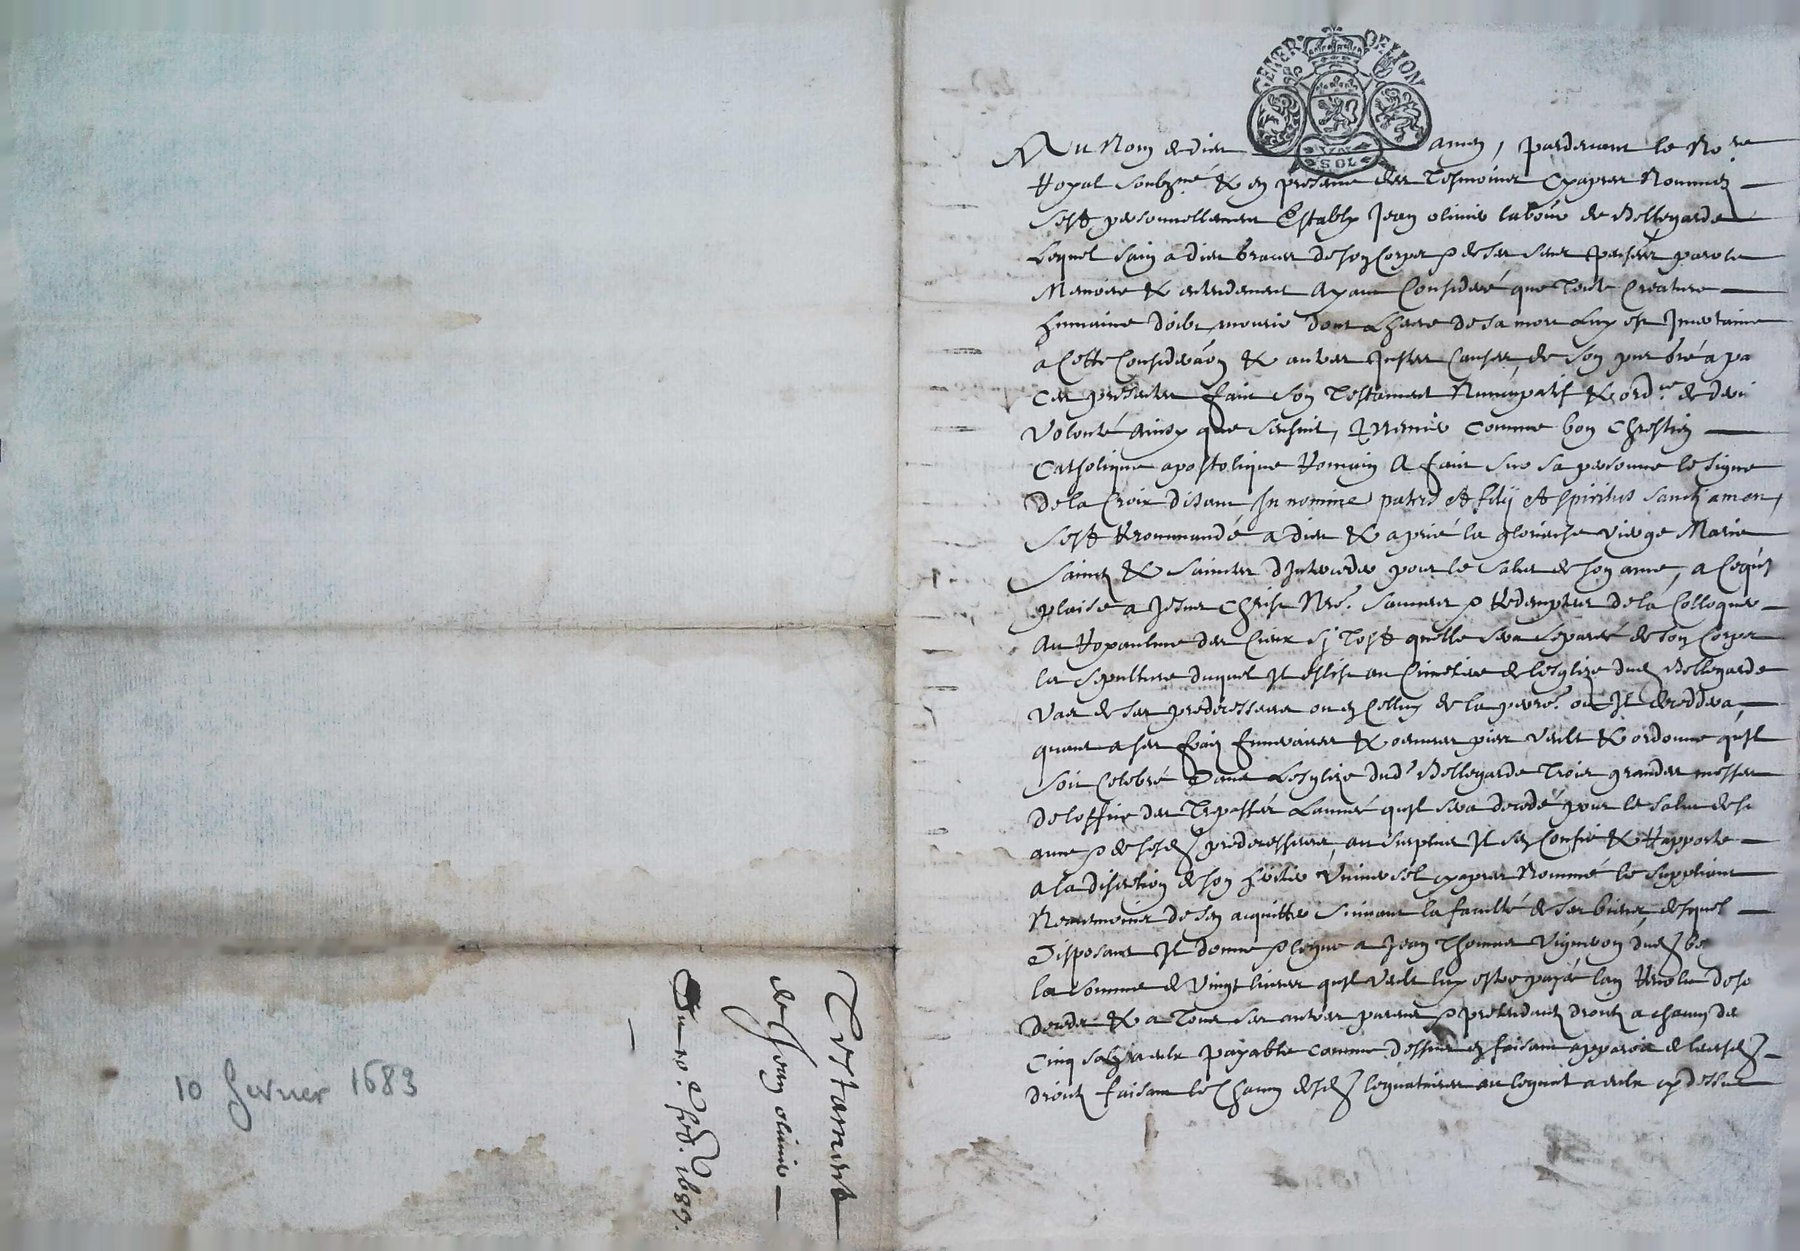 GENER DE LION
SOL
Au Nom de dieu amen, pardevant le No.re
Royal soubz.né & en presence des tesmoins cyapres Nommez
sest personnellement Estably Jean olivie laboûr de Bellegarde
Lequel sain a dieu graces de son Corps & de ses sens parole
Memoire & entendement Ayant Consideré que toute Creature
humaine doibt mourir dont Lheure de sa mort Luy est Incertaine
a Cette Consideraôn & autres Justes Causes de son pur gré a
Ces presentes fait son testament Nuncupatif & ord.re de
volonté Ainsy que sensuit, premier Comme bon Chrestien
Catholique apostolique Romain A fait sur sa personne le signe
De la Croix disant In nomine patris et filij et spiritus sancti amen,
sest Recommandé a dieu & a prié la glorieuse vierge Marie
saints & sainctes dInterceder pour le salut de son ame, a Ce quil
plaise a Jesus Christ Nre. sauveur & Redempteur de la Colloquer
Au Royaulme des Cieux si tost quelle sera separée de son Corps
la sepulture duquel Il eslist au Cimetiere de lesglize dud Bellegarde
vas de ses predecesseurs ou en Celluy de la ou Il deceddera,
quant a ses frais funeraires & oeuvres pies veult & ordonne quil
soit Celebré Dans Lesglize dud Bellegarde trois grandes messes
de loffice des trepassés Lannée quil sera decedé pour le salut de
ame & de sesd predecesseurs, au surplus Il sen Confie & Rapporte
A la discretion de son heritier universel cyapres Nommé le suppliant
Neantmoins de sen acquitter suivant la faculté de ses biens, desquels
Disposant Il donne & legue a Jean Thomas Vigneron dud
la somme de vingt livres quil veult luy estre payé lan Revolu de
deceds & a tous ses autres parents & pretendants droits a chacun de
Cinq solz payable comme dessus en faisant apparoir de leursd
droits faisant les Chacun desd legataires au legat a eulx cy dessus
Testament
de Jean olivie
Du 10.e fev. 1683.
10 fevrier 1683